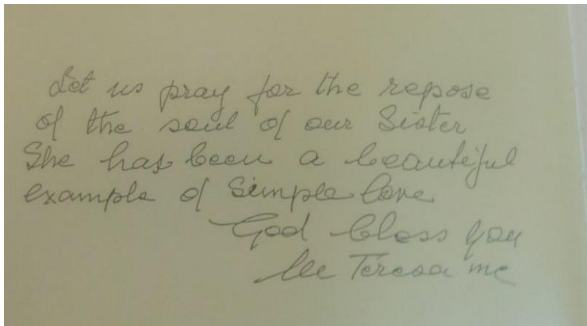 Let us pray for the repose
of the soul of our Sister
She has been a beautiful
example of simple love
God bless you
M Teresa mc